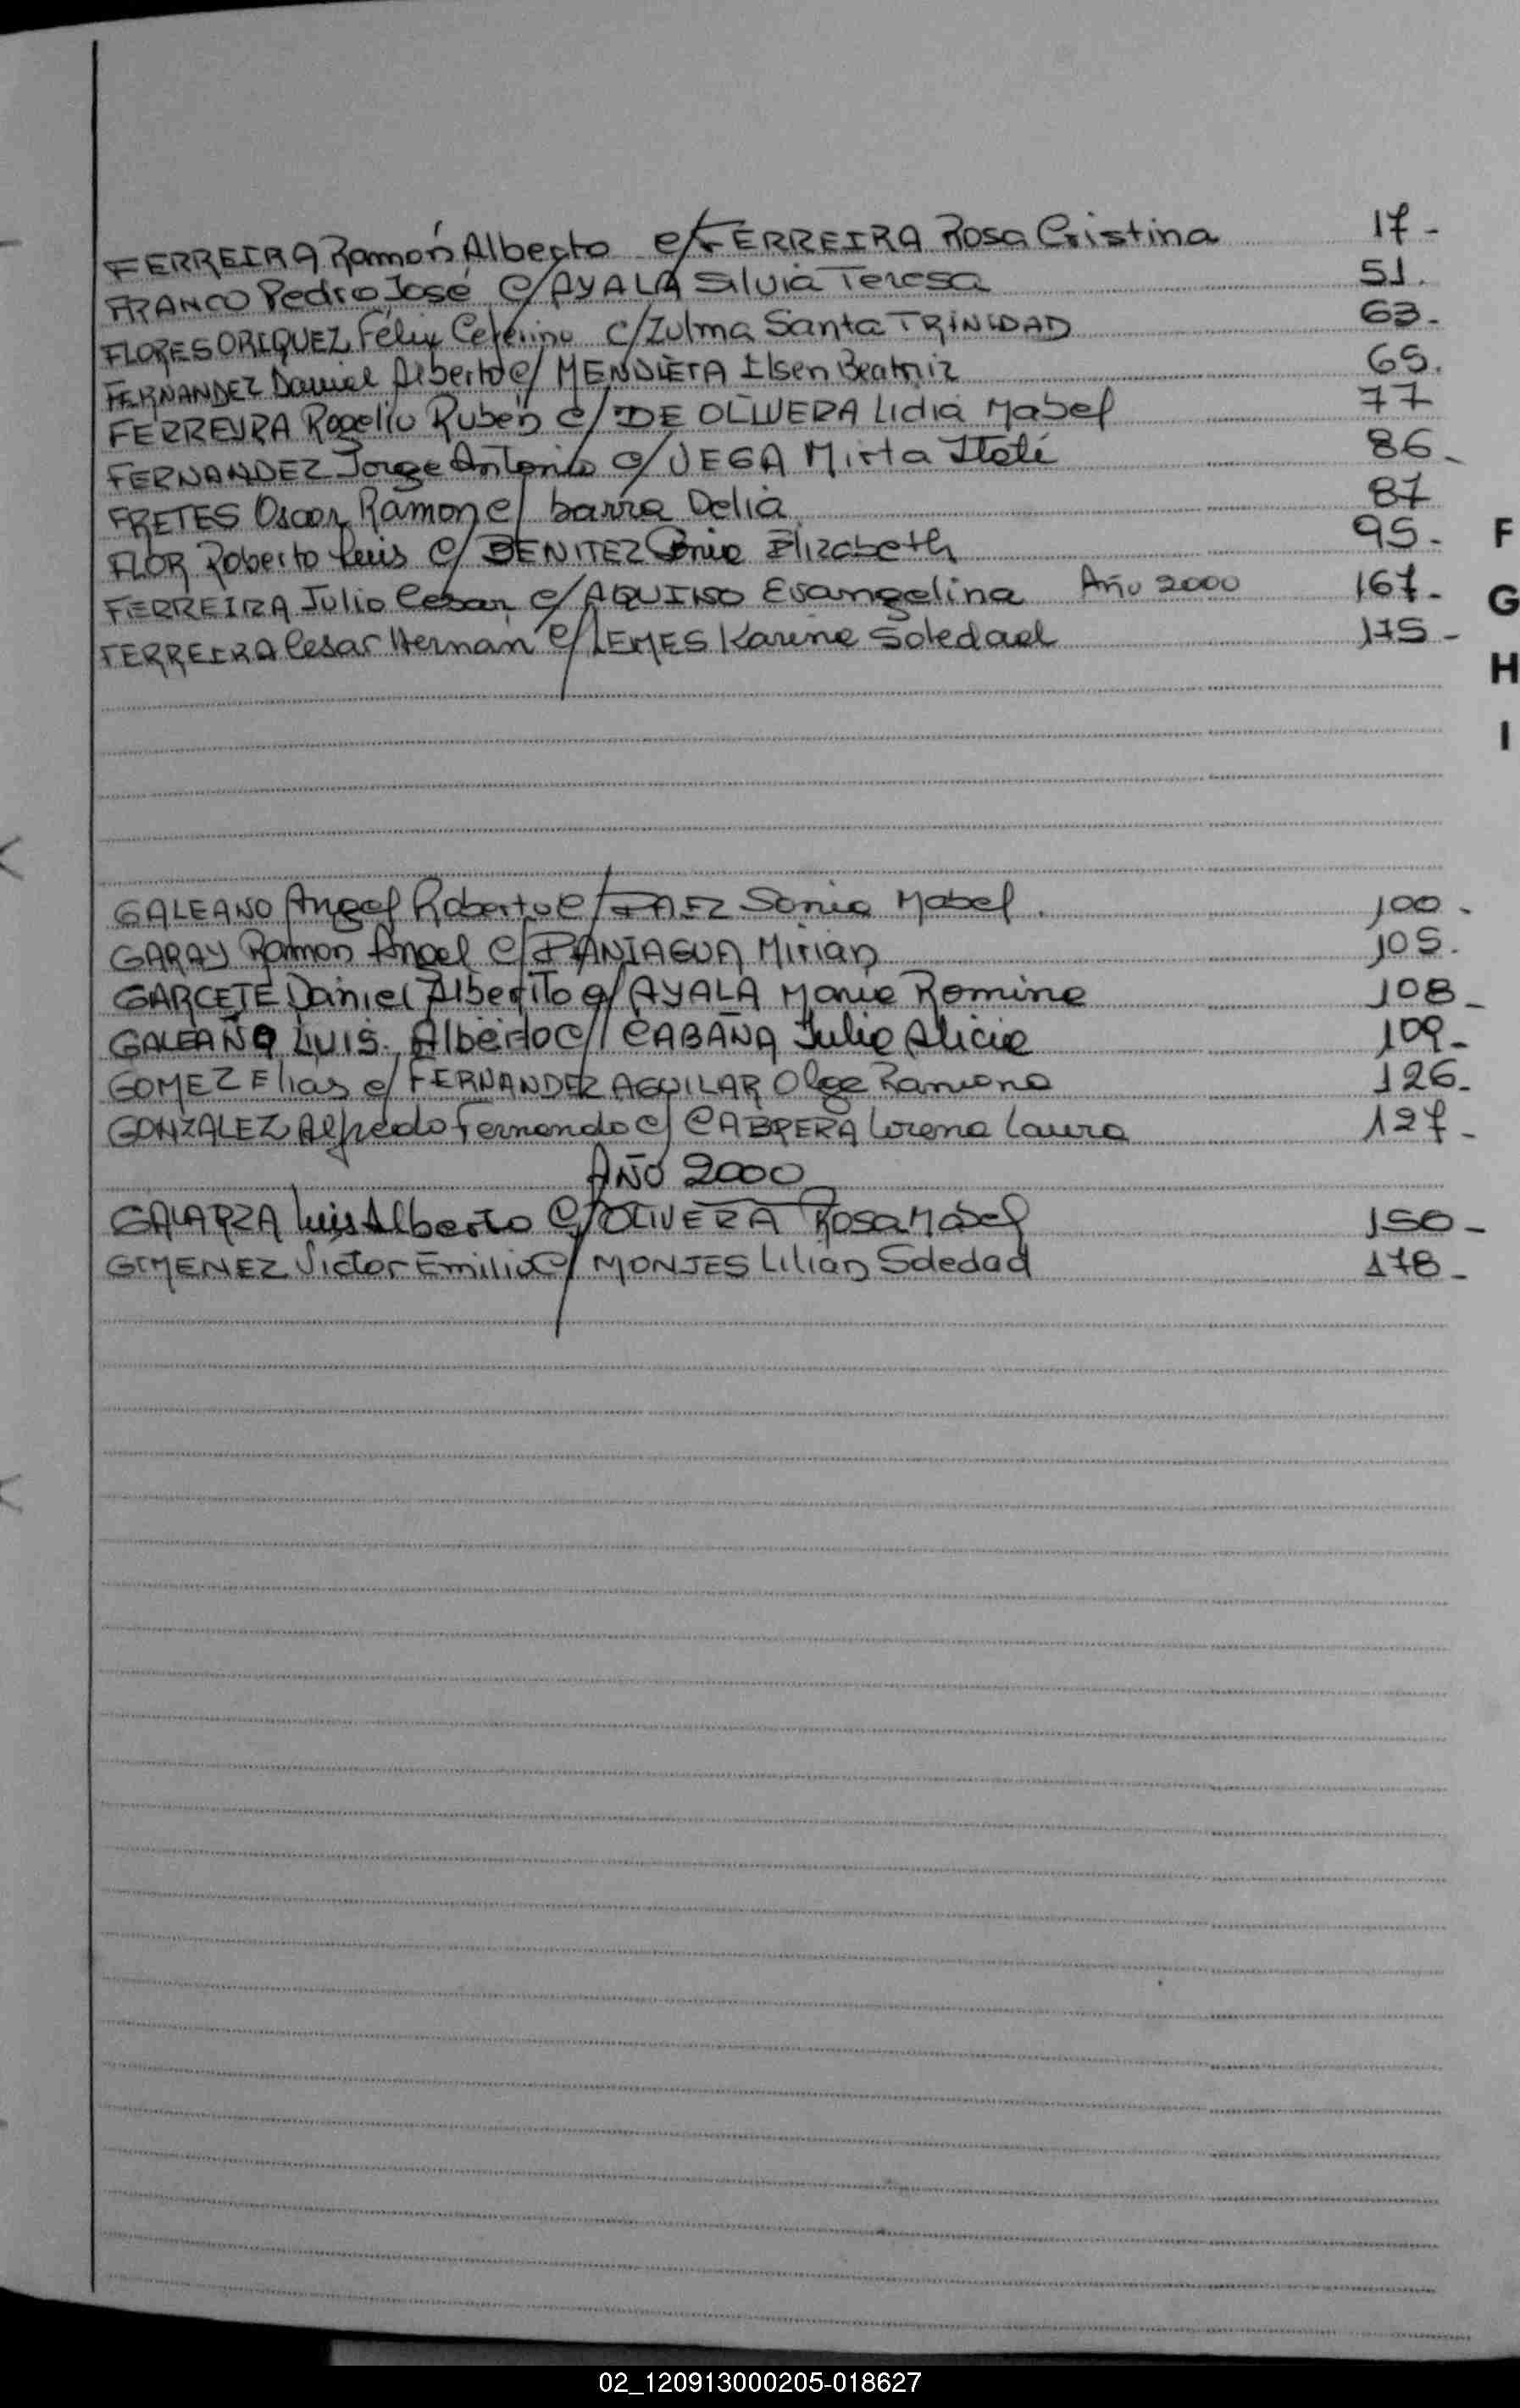 FERREIRA Ramón Alberto c/ FERREIRA Rosa Cristina 17-
FRANCO Pedro José c/ AYALA Silvia Teresa 51.
FLORES ORIQUEZ Félix Ceferino c/ Zulma Santa TRINIDAD 63-
FERNANDEZ Daniel Alberto c/ MENDIETA Ilsen Beatriz 65.
FERREYRA Rogelio Ruben c/ DE OLIVERA Lidia Mabel 77
FERNANDEZ Jorge Antonio c/ VEGA Mirta Itatí 86-
FRETES Oscar Ramon c/ barria Delia 87
FLOR Roberto Luis c/ BENITEZ Elizabeth 95-
FERREIRA Julio Cesar c/ AQUINO Evangelina Año 2000 167-
FERREIRA Cesar Hernan c/ LEMES Karina Soledad 175-
GALEANO Angel Roberto c/ PAEZ Sonia Mabel. 100-
GARAY Ramon Angel c/ PANIAGUA Mirian 105.
GARCETE Daniel Alberto c/ AYALA Maria Romina 108-
GALEANO LUIS Alberto c/ CABAÑA Julia Alicia 109-
GOMEZ Elias c/ FERNANDEZ AGUILAR Olga Ramona 126-
GONZALEZ Alfredo Fernando c/ CABRERA Lorena Laura 127-
AÑO 2000
GALARZA Luis Alberto c/ OLIVERA Rosa Mabel 150-
GIMENEZ Victor Emilio c/ MONJES Lilian Soledad 178-
F
G
H
I
02_120913000205-018627